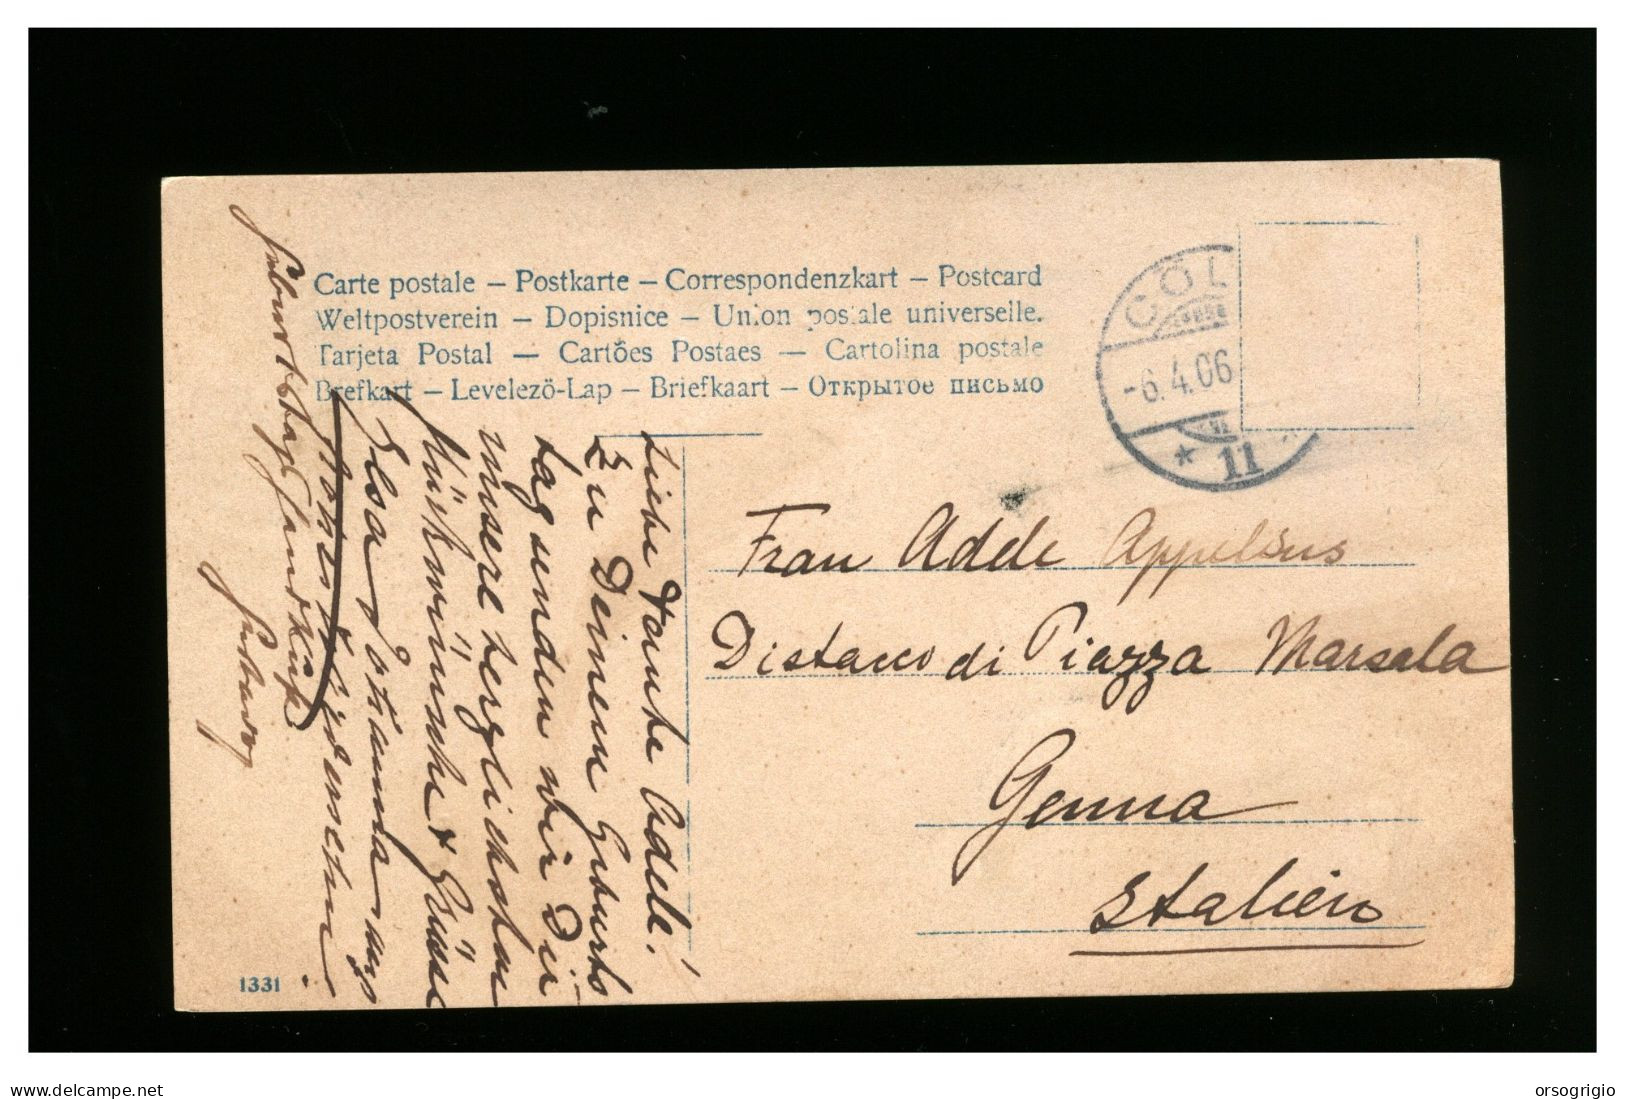 Carte postale – Postkarte – Correspondenzkart – Postcard
Weltpostverein – Dopisnice – Union postale universelle.
Tarjeta Postal – Cartões Postaes – Cartolina postale
Brefkart – Levelező-Lap – Briefkaart – Открытое письмо
CÖL
-6.4.06
* 11
Liebe Tante Adele!
Zu Deinem Geburts
tag senden wir Dir
unsere herzlichsten
Glückwünsche & Grüsse
Elsa
Frau Adele Appelius
Distacco di Piazza Marsala
Genua
Italien
1331
www.delcampe.net
orsogrigio